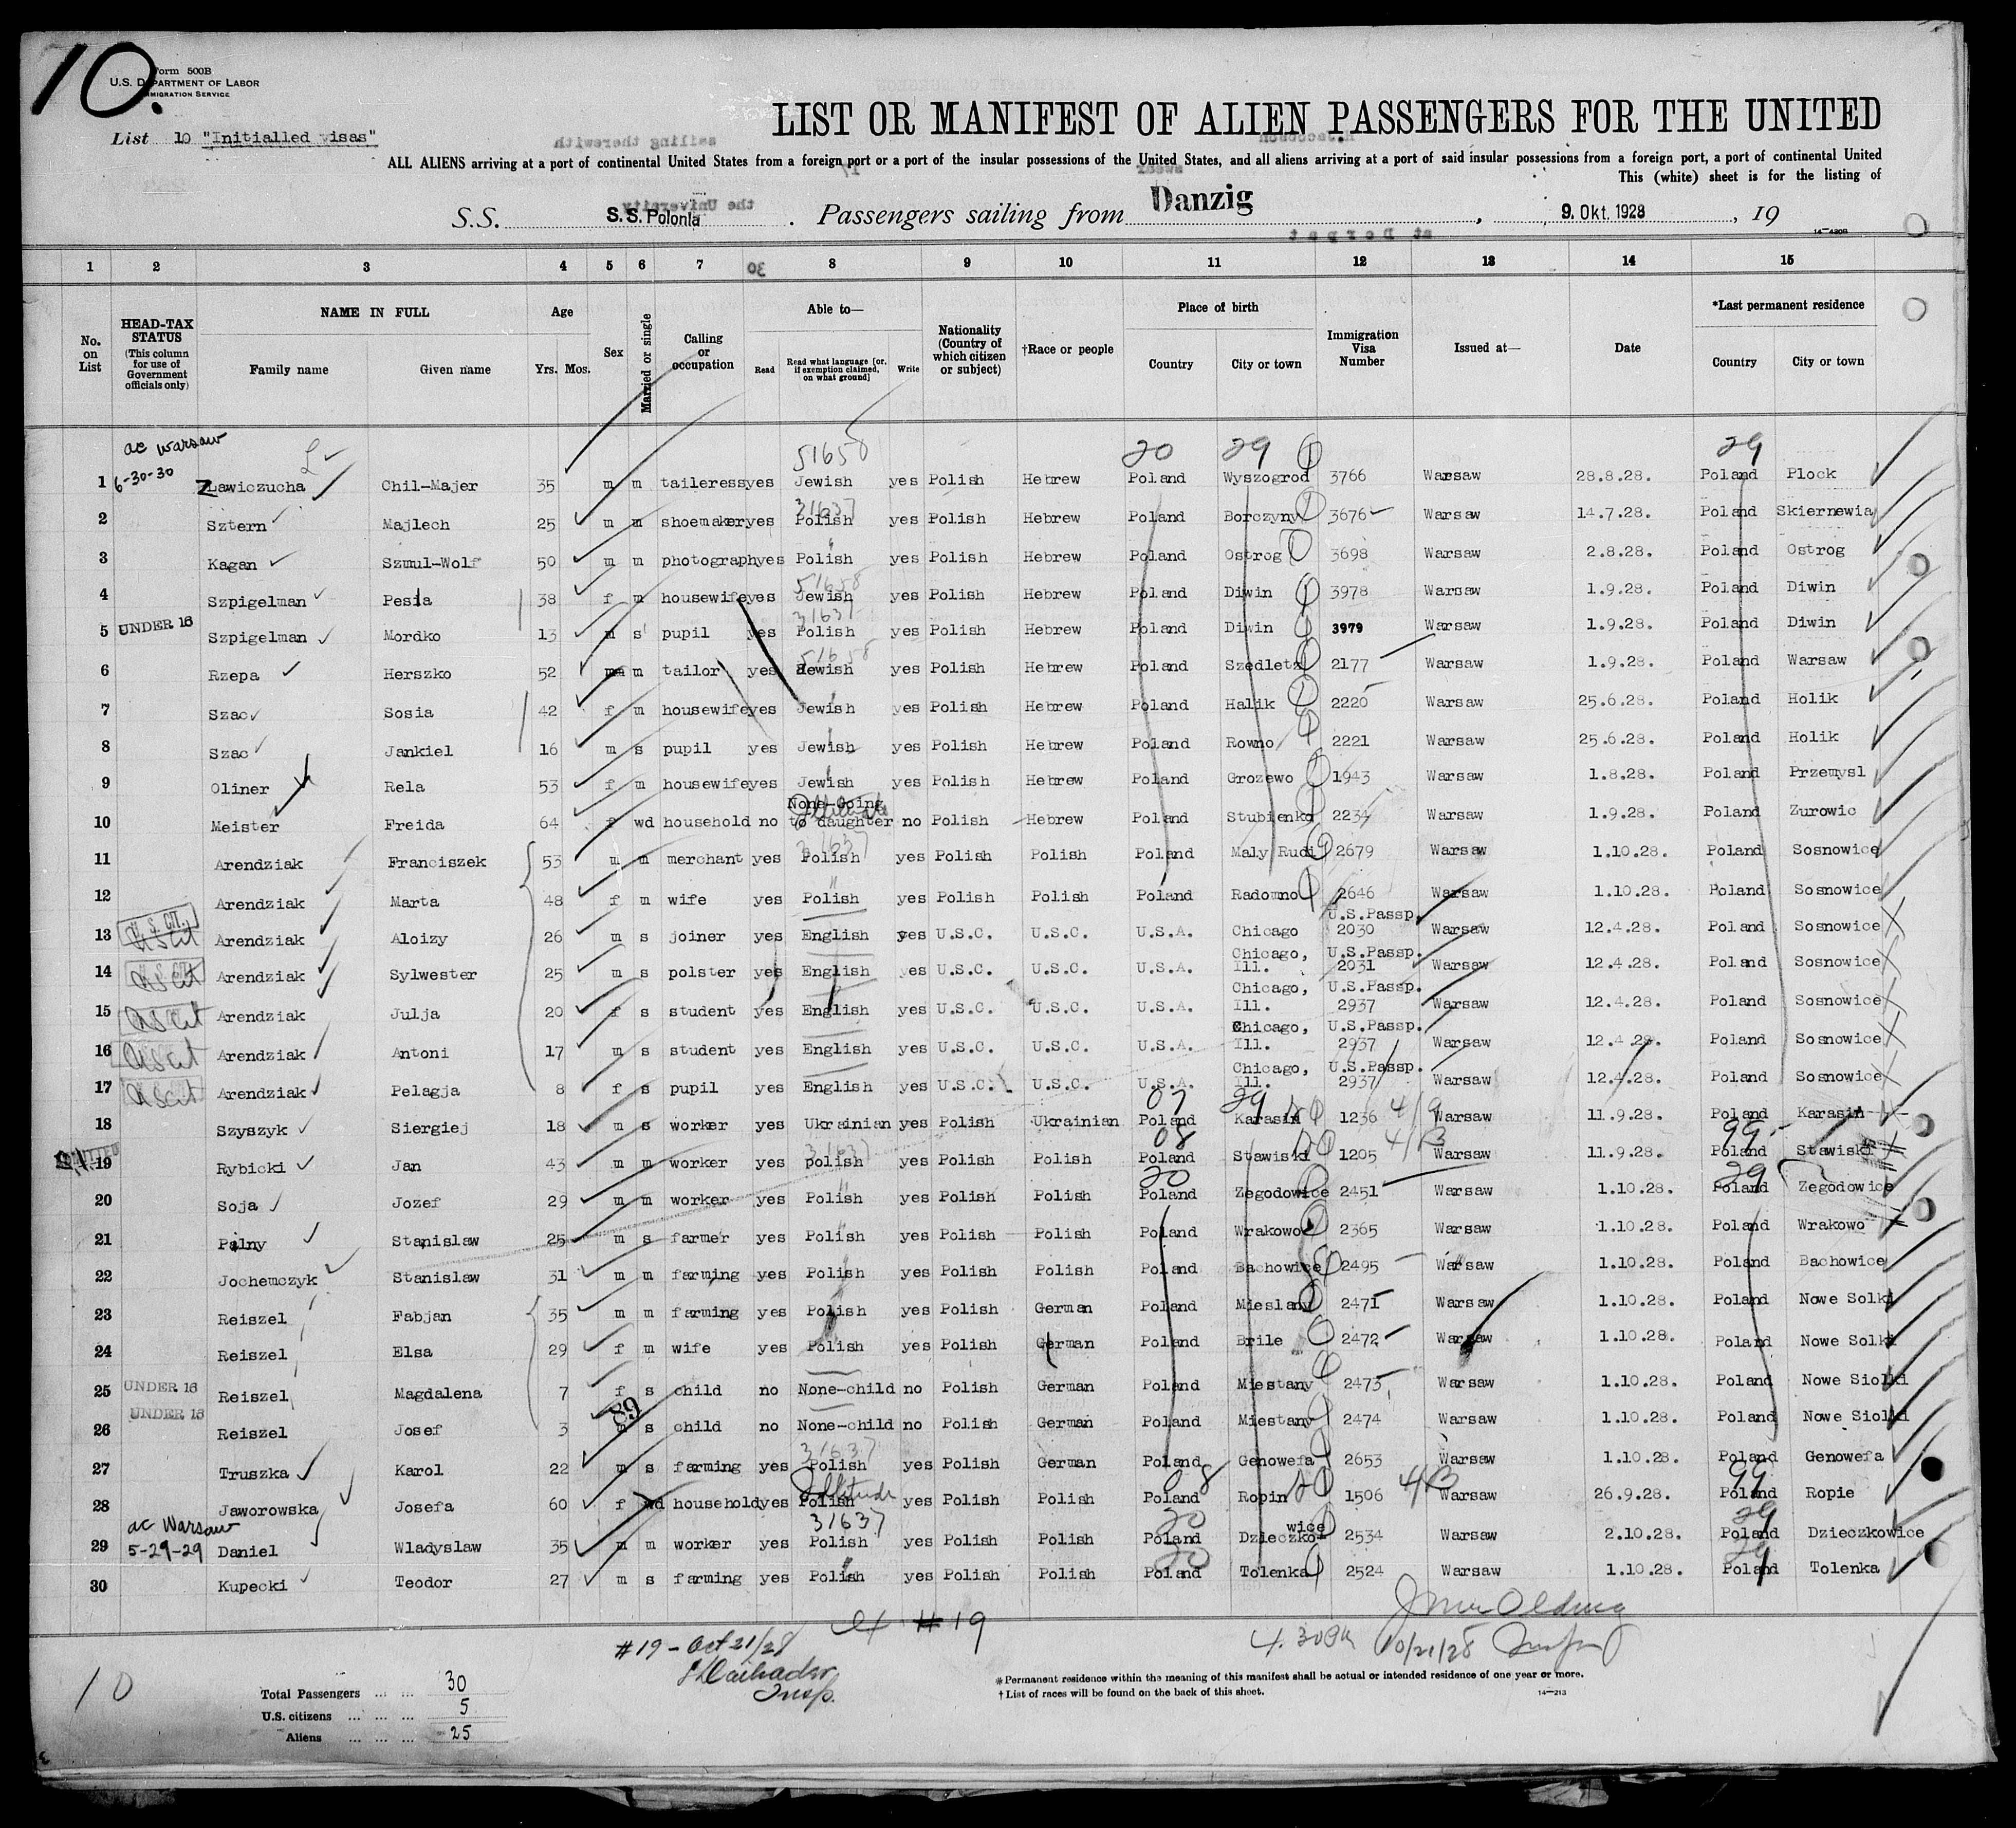 10.
Form 500B
U.S. DEPARTMENT OF LABOR
IMMIGRATION SERVICE
List 10 "Initialled visas"
LIST OR MANIFEST OF ALIEN PASSENGERS FOR THE UNITED
ALL ALIENS arriving at a port of continental United States from a foreign port or a port of the insular possessions of the United States, and all aliens arriving at a port of said insular possessions from a foreign port, a port of continental United
This (white) sheet is for the listing of
S.S. S.S. Polonia. Passengers sailing from Danzig, 9. Okt. 1928, 19
14-430B
1 2 3 4 5 6 7 8 9 10 11 12 13 14 15
No. on List
HEAD-TAX STATUS (This column for use of Government officials only)
NAME IN FULL Family name Given name
Age Yrs. Mos.
Sex
Married or single
Calling or occupation
Able to— Read Read what language [or, if exemption claimed, on what ground] Write
Nationality (Country of which citizen or subject)
†Race or people
Place of birth Country City or town
Immigration Visa Number
Issued at—
Date
*Last permanent residence Country City or town
ac Warsaw 51658 20 29 29
1 6-30-30 Zawiczucha Chil-Majer 35 m m taileress yes Jewish yes Polish Hebrew Poland Wyszogrod 3766 Warsaw 28.8.28. Poland Plock
31637
2 Sztern Majlech 25 m m shoemaker yes Polish yes Polish Hebrew Poland Borczyny 3676 Warsaw 14.7.28. Poland Skiernewia
3 Kagan Szmul-Wolf 50 m m photograph yes Polish yes Polish Hebrew Poland Ostrog 3698 Warsaw 2.8.28. Poland Ostrog
51658
4 Szpigelman Pesia 38 f m housewife yes Jewish yes Polish Hebrew Poland Diwin 3978 Warsaw 1.9.28. Poland Diwin
31637
5 UNDER 16 Szpigelman Mordko 13 m s pupil yes Polish yes Polish Hebrew Poland Diwin 3979 Warsaw 1.9.28. Poland Diwin
51658
6 Rzepa Herszko 52 m m tailor yes Jewish yes Polish Hebrew Poland Szedletz 2177 Warsaw 1.9.28. Poland Warsaw
7 Szac Sosia 42 f m housewife yes Jewish yes Polish Hebrew Poland Halik 2220 Warsaw 25.6.28. Poland Holik
8 Szac Jankiel 16 m s pupil yes Jewish yes Polish Hebrew Poland Rowno 2221 Warsaw 25.6.28. Poland Holik
9 Oliner Rela 53 f m housewife yes Jewish yes Polish Hebrew Poland Grozewo 1943 Warsaw 1.8.28. Poland Przemysl
10 Meister Freida 64 f wd household no None-Going to daughter no Polish Hebrew Poland Stubienko 2234 Warsaw 1.9.28. Poland Zurowic
31637
11 Arendziak Franciszek 53 m m merchant yes Polish yes Polish Polish Poland Maly Rudi 2679 Warsaw 1.10.28. Poland Sosnowice
12 Arendziak Marta 48 f m wife yes Polish yes Polish Polish Poland Radomno 2646 Warsaw 1.10.28. Poland Sosnowice
13 U.S. CIT. US Cit Arendziak Aloizy 26 m s joiner yes English yes U.S.C. U.S.C. U.S.A. Chicago U.S.Passp. 2030 Warsaw 12.4.28. Poland Sosnowice
14 US Cit Arendziak Sylwester 25 m s polster yes English yes U.S.C. U.S.C. U.S.A. Chicago, Ill. U.S.Passp. 2031 Warsaw 12.4.28. Poland Sosnowice
15 US Cit Arendziak Julja 20 f s student yes English yes U.S.C. U.S.C. U.S.A. Chicago, Ill. U.S.Passp. 2937 Warsaw 12.4.28. Poland Sosnowice
16 US Cit Arendziak Antoni 17 m s student yes English yes U.S.C. U.S.C. U.S.A. Chicago, Ill. U.S.Passp. 2937 Warsaw 12.4.28. Poland Sosnowice
17 US Cit Arendziak Pelagja 8 f s pupil yes English yes U.S.C. U.S.C. U.S.A. Chicago, Ill. U.S.Passp. 2937 Warsaw 12.4.28. Poland Sosnowice
07 29
18 Szyszyk Siergiej 18 m s worker yes Ukrainian yes Polish Ukrainian Poland Karasin 1236 4/9 Warsaw 11.9.28. Poland Karasin
31637 08 99
19 Rybicki Jan 43 m m worker yes polish yes Polish Polish Poland Stawiski 1205 4/B Warsaw 11.9.28. Poland Stawiski
20 29
20 Soja Jozef 29 m m worker yes Polish yes Polish Polish Poland Zegodowice 2451 Warsaw 1.10.28. Poland Zegodowice
21 Palny Stanislaw 25 m s farmer yes Polish yes Polish Polish Poland Wrakowo 2365 Warsaw 1.10.28. Poland Wrakowo
22 Jochemczyk Stanislaw 31 m m farming yes Polish yes Polish Polish Poland Bachowice 2495 Warsaw 1.10.28. Poland Bachowice
23 Reiszel Fabjan 35 m m farming yes Polish yes Polish German Poland Mieslany 2471 Warsaw 1.10.28. Poland Nowe Solki
24 Reiszel Elsa 29 f m wife yes Polish yes Polish German Poland Brile 2472 Warsaw 1.10.28. Poland Nowe Solki
25 UNDER 16 Reiszel Magdalena 7 f s child no None-child no Polish German Poland Miestany 2473 Warsaw 1.10.28. Poland Nowe Siolki
89
26 UNDER 16 Reiszel Josef 3 m s child no None-child no Polish German Poland Miestany 2474 Warsaw 1.10.28. Poland Nowe Siolki
31637
27 Truszka Karol 22 m s farming yes Polish yes Polish German Poland Genowefa 2653 Warsaw 1.10.28. Poland Genowefa
08 99
28 Jaworowska Josefa 60 f wd household yes Polish yes Polish Polish Poland Ropin 1506 4/B Warsaw 26.9.28. Poland Ropie
ac Warsaw 31637 20 29
29 5-29-29 Daniel Wladyslaw 35 m m worker yes Polish yes Polish Polish Poland Dzieczkowice 2534 Warsaw 2.10.28. Poland Dzieczkowice
20 29
30 Kupecki Teodor 27 m s farming yes Polish yes Polish Polish Poland Tolenka 2524 Warsaw 1.10.28. Poland Tolenka
#19
#19 - Oct 21/28
Insp.
10/21/28
*Permanent residence within the meaning of this manifest shall be actual or intended residence of one year or more.
†List of races will be found on the back of this sheet.
14-213
10
Total Passengers ... ... 30
U.S. citizens ... ... ... 5
Aliens ... ... ... 25